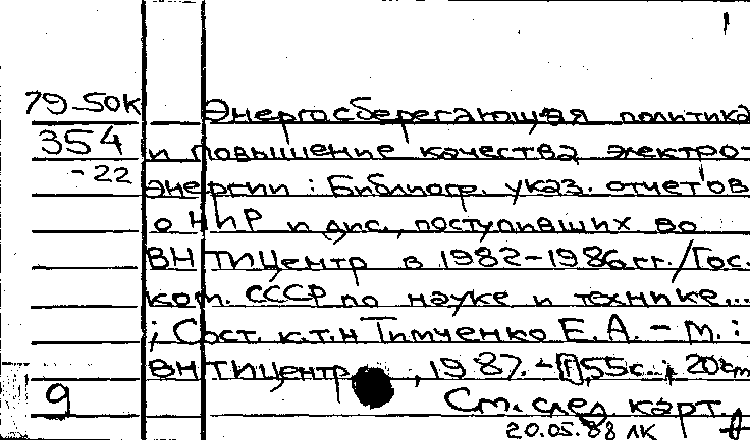 79-50к Энергосберегающая политика
354 и повышение качества электро-
-22 энергии : Библиогр. указ. отчетов
о НИР и дис., поступивших во
ВНТИЦентр в 1982-1986 гг. / Гос.
ком. СССР по науке и технике...
; Сост. к.т.н Тимченко Е.А. - М. :
ВНТИЦентр, 1987. - 55 с. ; 20 см
9 См. след. карт.
20.05.88 ЛК